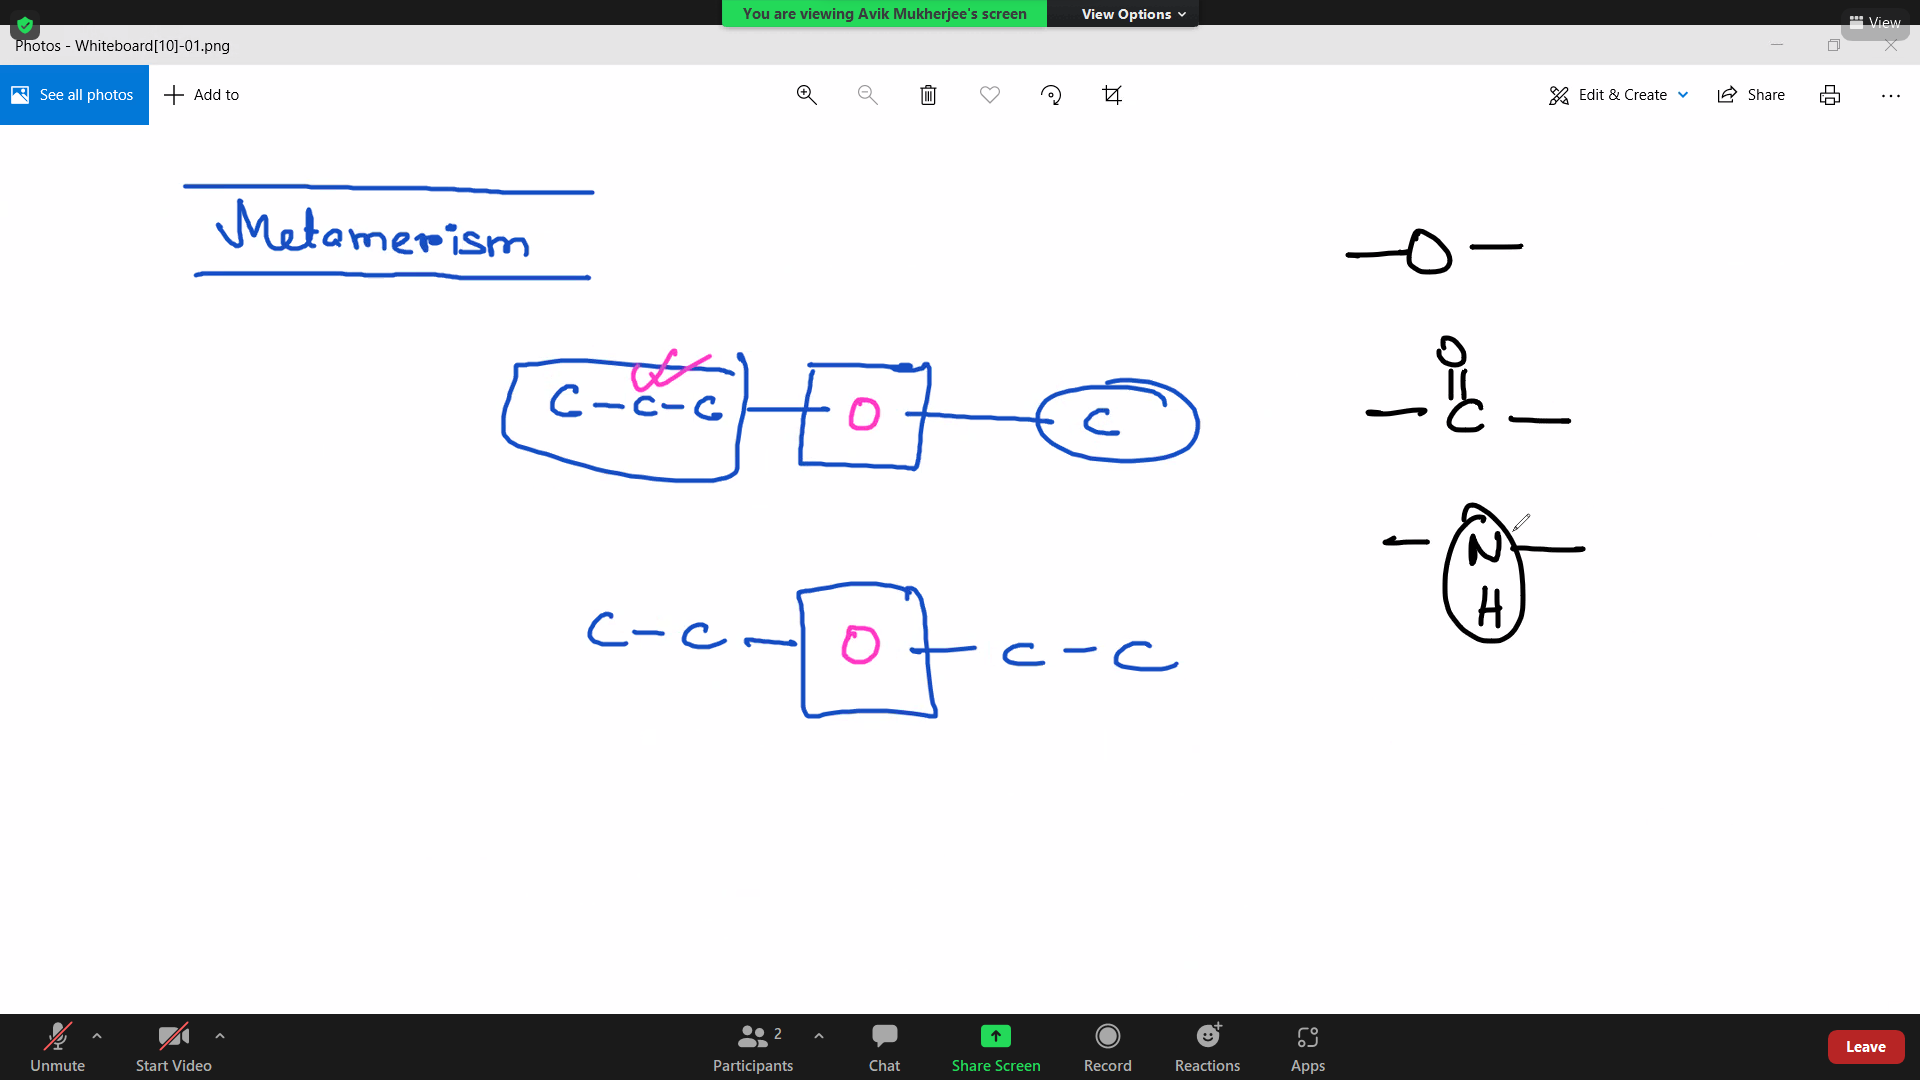 You are viewing Avik Mukherjee's screen View Options
View
Photos - Whiteboard[10]-01.png
See all photos Add to Edit & Create Share
Metamerism
O
O
C - C - C O C
C
N
H
C - C O C - C
Unmute Start Video Participants 2 Chat Share Screen Record Reactions Apps Leave